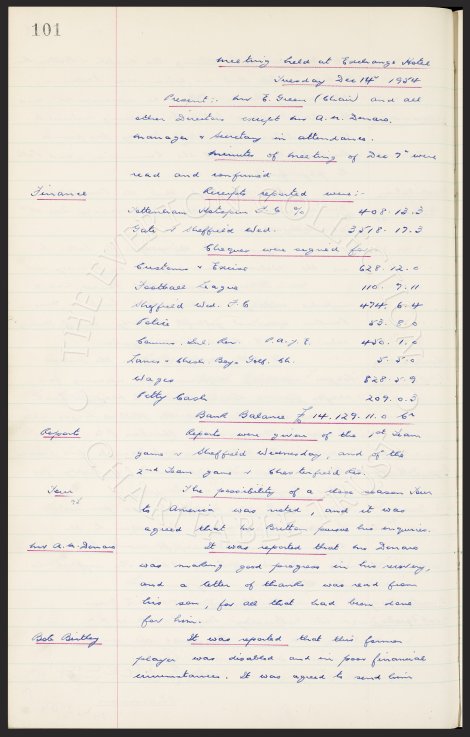 101
Meeting held at Exchange Hotel
Tuesday Dec 14th 1954
Present:- Mr E. Green (Chair) and all
other Directors except Mr A. H. Denaro.
Manager & Secretary in attendance.
Minutes of Meeting of Dec 7th were
read and confirmed
Finance Receipts reported were:-
Tottenham Hotspur F.C. % 408. 13. 3
Gate v Sheffield Wed. 3518. 17. 3
Cheques were signed for
Customs & Excise 628. 12. 0
Football League 110. 7. 11
Sheffield Wed. F.C 474. 6. 4
Police 53. 8. 0
Comm. Inl. Rev. P.A.Y.E. 450. 1. 0
Lancs & Chesh. Boys 5. 5. 0
Wages 828. 5. 9
Petty Cash 209. 0. 3
Bank Balance £14,129. 11. 0
Reports Reports were given of the 1st Team
game v Sheffield Wednesday, and of the
2nd Team game v Chesterfield Res.
Tour The possibility of a close season Tour
to America was noted, and it was
agreed that Mr Britton pursue his enquiries.
Mr A. H. Denaro It was reported that Mr Denaro
was making good progress in his recovery,
and a letter of thanks was read from
his son, for all that had been done
for him.
Bob Bentley It was reported that this former
player was disabled and in poor financial
circumstances. It was agreed to send him
THE EVERTON COLLECTION
CHARITABLE